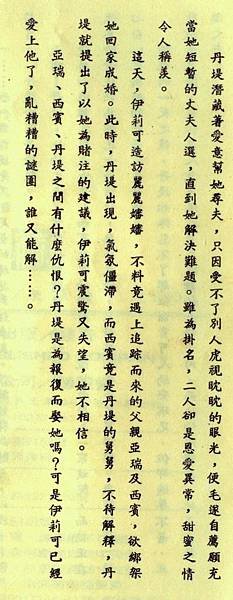 丹堤潛藏著愛意幫她尋夫，只因受不了別人虎視眈眈的眼光，便毛遂自薦願充
當她短暫的丈夫人選，直到她解決難題。雖為掛名，二人卻是恩愛異常，甜蜜之情
令人稱羨。
這天，伊莉可造訪麗麗嬸嬸，不料竟遇上追踪而來的父親亞瑞及西賓，欲綁架
她回家成婚。此時，丹堤出現，氣氛僵滯，而西賓竟是丹堤的舅舅，不待解釋，丹
堤就提出了以她為賭注的建議，伊莉可震驚又失望，她不相信。
亞瑞、西賓、丹堤之間有什麼仇恨？丹堤是為報復而娶她嗎？可是伊莉可已經
愛上他了，亂糟糟的謎團，誰又能解……。